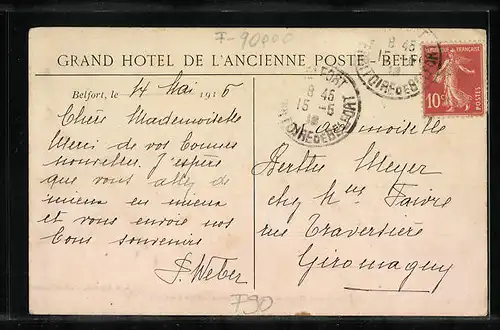 F-90000
GRAND HOTEL DE L'ANCIENNE POSTE, BELF
Belfort, le 14 Mai 1916
Chère Mademoiselle
Merci de vos bonnes
nouvelles. J'espère
que vous allez de
mieux en mieux
et vous envoie nos
bons souvenirs
J. Weber
BELFORT
8 45
15 -5
16
TERRITOIRE DE BELFORT
8 45
15 -5
16
TERRITOIRE DE BELFORT
RÉPUBLIQUE FRANÇAISE
10c
POSTES
ademoiselle
Berthe Meyer
chez Mr Faivre
rue Traversière
Giromagny
790